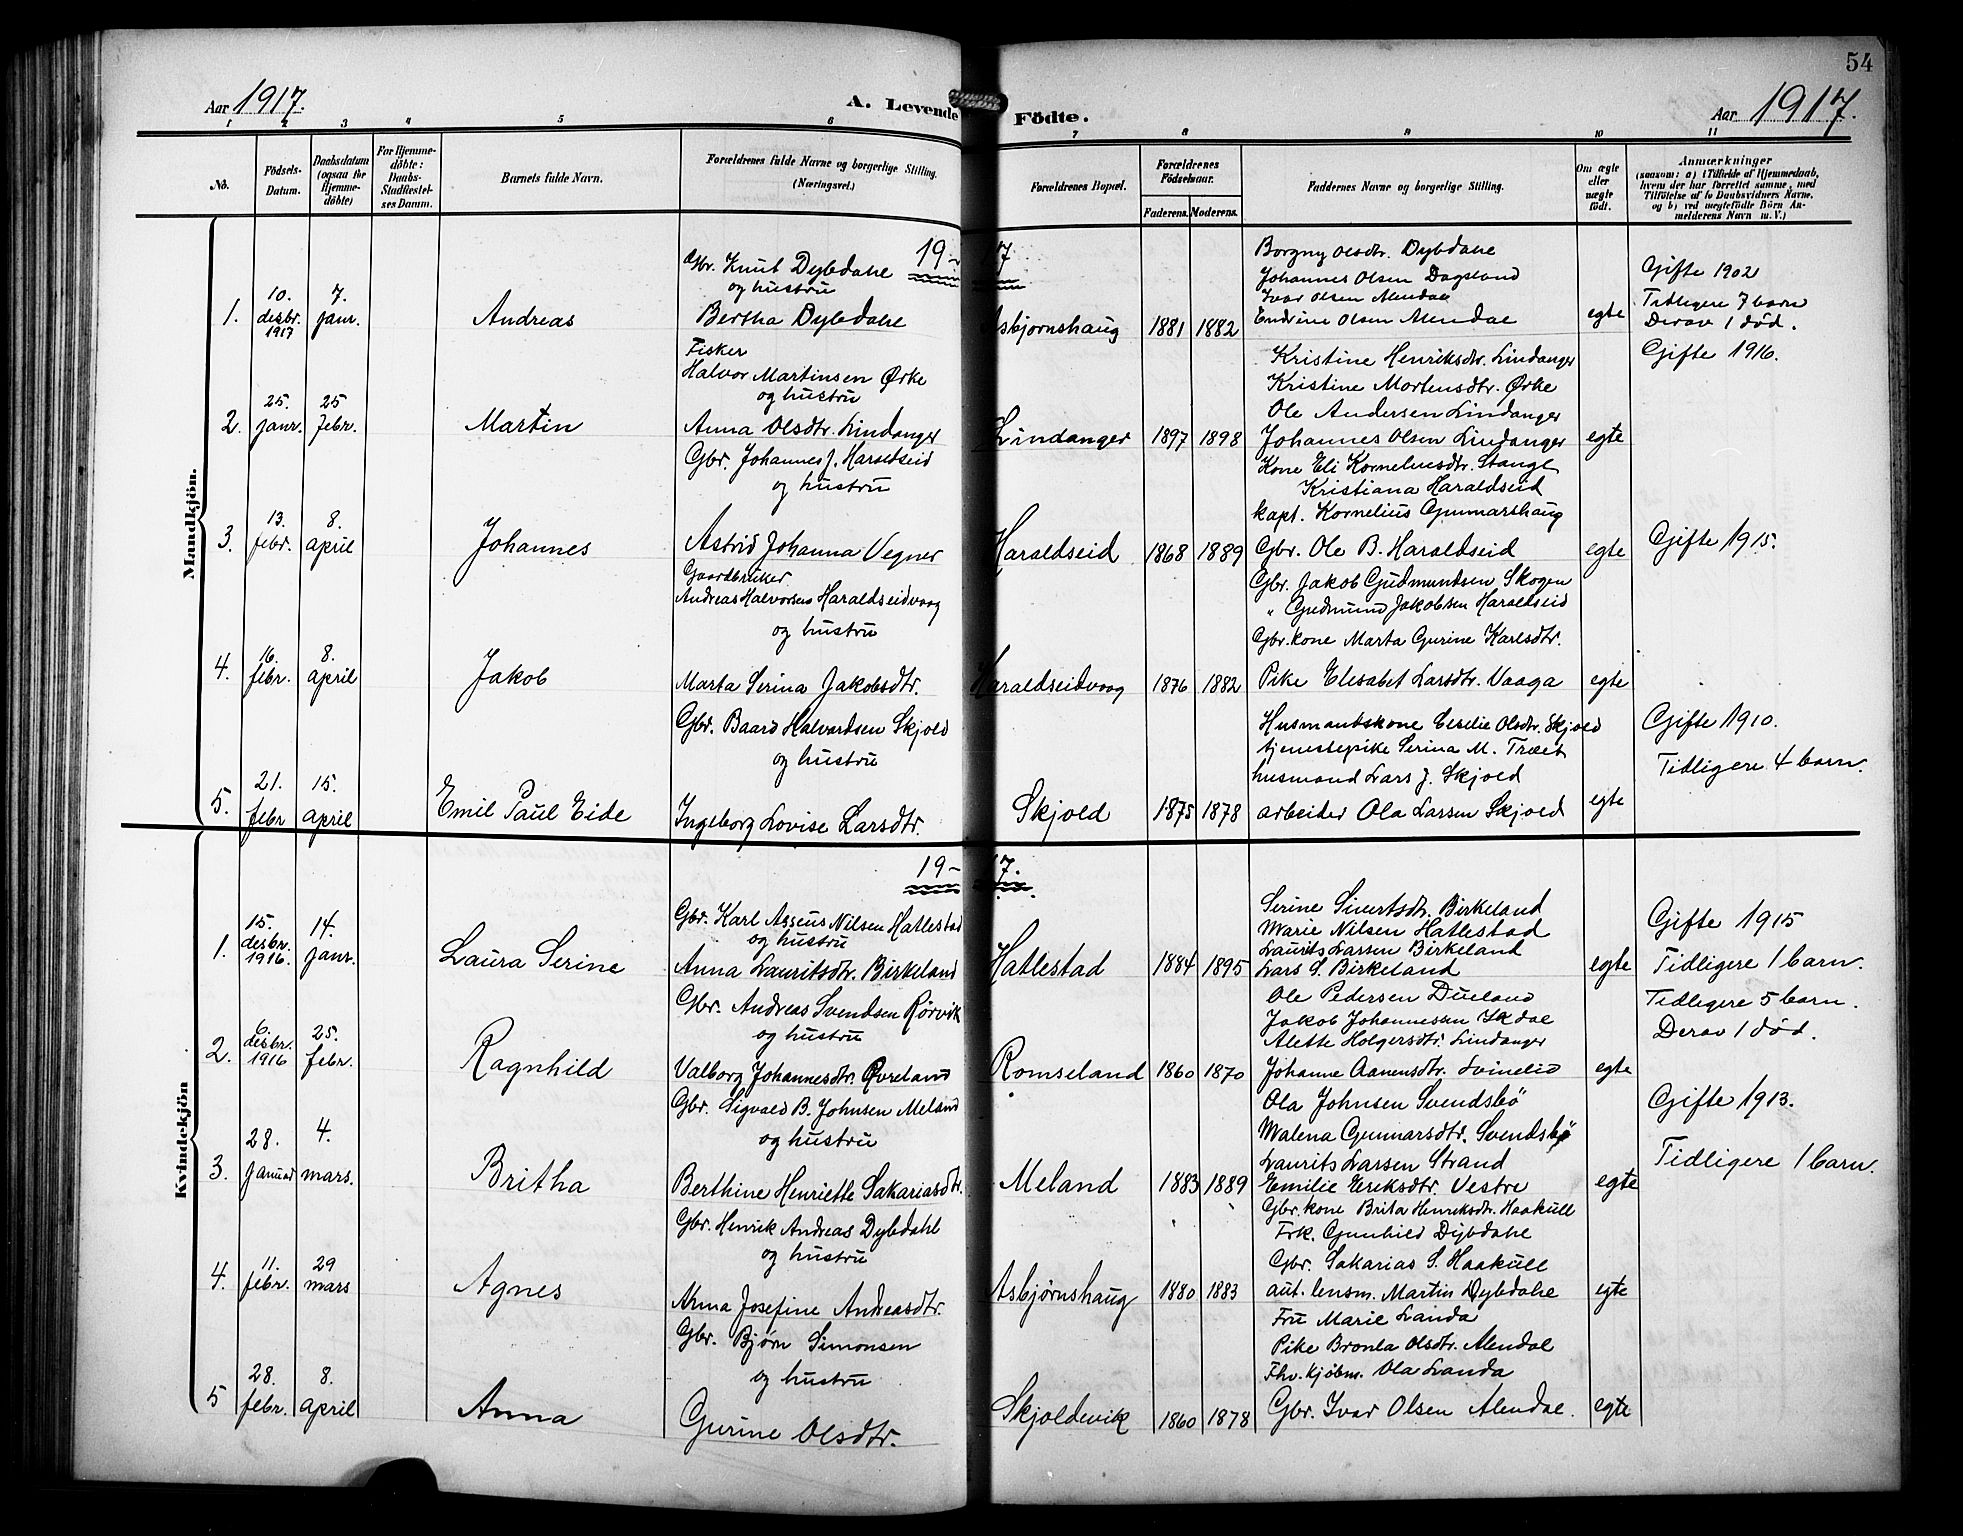 54
Aar 1917.
A. Levende Födte.
Aar 1917.
1 2 3 4 5 6 7 8 9 10 11
No.
Födsels-Datum.
Daabsdatum (ogsaa for Hjemme-döbte)
For Hjemme-döbte: Daabs-Stadfæstel-ses Datum.
Barnets fulde Navn.
Forældrenes fulde Navne og borgerlige Stilling. (Næringsvei.)
Forældrenes Bopæl.
Forældrenes Födselsaar.
Faderens. Moderens.
Faddernes Navne og borgerlige Stilling.
Om ægte eller uægte født.
Anmærkninger
(saasom: a) i Tilfælde af Hjemmedaab, hvem der har forrettet samme, med Tilföielse af to Daabsvidners Navne, og b) ved uægtefödte Börn An-melderens Navn m. V.)
Mandkjön.
19-17
1.
10. desbr. 1917
7. janr.
Andreas
Gbr. Knut Dybdahl
og hustru
Bertha Dybdahl
Asbjørnshaug
1881 1882
Borgny Olsdtr. Dybdahl
Johannes Olsen Dagsland
Ivar Olsen Alendal
Endrine Olsen Alendal
egte
Gifte 1902
Tidligere 7 barn
Derav 1 død.
2.
25. janr.
25 febr.
Martin
Fisker
Halvor Martinsen Ørke
og hustru
Anna Olsdtr. Lindanger
Lindanger
1897 1898
Kristine Henriksdtr. Lindanger
Kristine Mortensdtr. Ørke
Ole Andersen Lindanger
Johannes Olsen Lindanger
egte
Gifte 1916.
3.
13. febr.
8. april
Johannes
Gbr. Johannes J. Haraldseid
og hustru
Astrid Johanna Vegner
Haraldseid
1868 1889
Kone Eli Korneliusdtr. Stange
Kristiana Haraldseid
kapt. Kornelius Gunnarshaug
Gbr. Ole B. Haraldseid
egte
Gifte 1915.
4.
16. febr.
8. april
Jakob
Gaardbruker
Andreas Halvorsen Haraldseidvaag
og hustru
Marta Serina Jakobsdtr.
Haraldseidvaag
1876 1882
Gbr. Jakob Gudmundsen Skogen
" Gudmund Jakobsen Haraldseid
Gbr. kone Marta Gurine Karlsdtr.
Pike Elisabet Larsdtr. Vaaga
egte
5.
21. febr
15. april
Emil Paul Eide
Gbr. Baard Halvardsen Skjold
og hustru
Ingeborg Lovise Larsdtr.
Skjold
1875 1878
Husmandskone Cesilie Olsdtr. Skjold
tjenestepike Serina M. Træet
husmand Lars J. Skjold
arbeider Ola Larsen Skjold
egte
Gifte 1910.
Tidligere 4 barn.
Kvindekjön
19-17.
1.
15. desbr. 1916.
14. janr.
Laura Serine
Gbr. Karl Asseus Nilsen Hatlestad
og hustru
Anna Lauritsdtr. Birkeland
Hatlestad
1884 1895
Serine Sivertsdtr. Birkeland
Marie Nilsen Hatlestad
Laurits Larsen Birkeland
Lars S. Birkeland
egte
Gifte 1915
Tidligere 1 barn.
2.
6 desbr. 1916
25. febr.
Ragnhild
Gbr. Andreas Svendsen Rørvik
og hustru
Valborg Johannesdtr. Øvreland
Romseland
1860 1870
Ole Pedersen Dueland
Jakob Johannessen Ikdal
Alette Holgersdtr. Lindanger
Johanne Aanensdtr. Svinelid
egte
Tidligere 5 barn.
Derav 1 død.
3.
28. januar
4. mars.
Britha
Gbr. Sigvald B. Johnsen Meland
og hustru
Berthine Henriette Sakariasdtr.
Meland
1883 1889
Ola Johnsen Svendsbö
Malena Gunnarsdtr. Svendsbö
Laurits Larsen Strand
Emilie Eriksdtr. Vestre
egte
Gifte 1913.
Tidligere 1 barn.
4.
11. febr.
29 mars
Agnes
Gbr. Henrik Andreas Dybdahl
og hustru
Anna Josefine Andreasdtr.
Asbjørnshaug
1880 1883
Gbr. kone Brita Henriksdtr. Haakull
Frk. Gunhild Dybdahl
Gbr. Sakarias S. Haakull
aut. lensm. Martin Dybdahl
egte
5
28. febr.
8. april
Anna
Gbr. Bjørn Simonsen
og hustru
Gurine Olsdtr.
Skjoldevik
1860 1878
Fru Marie Landa
Pike Bronla Olsdtr. Alendal
Fhv. kjøbm. Ola Landa
Gbr. Ivar Olsen Alendal.
egte